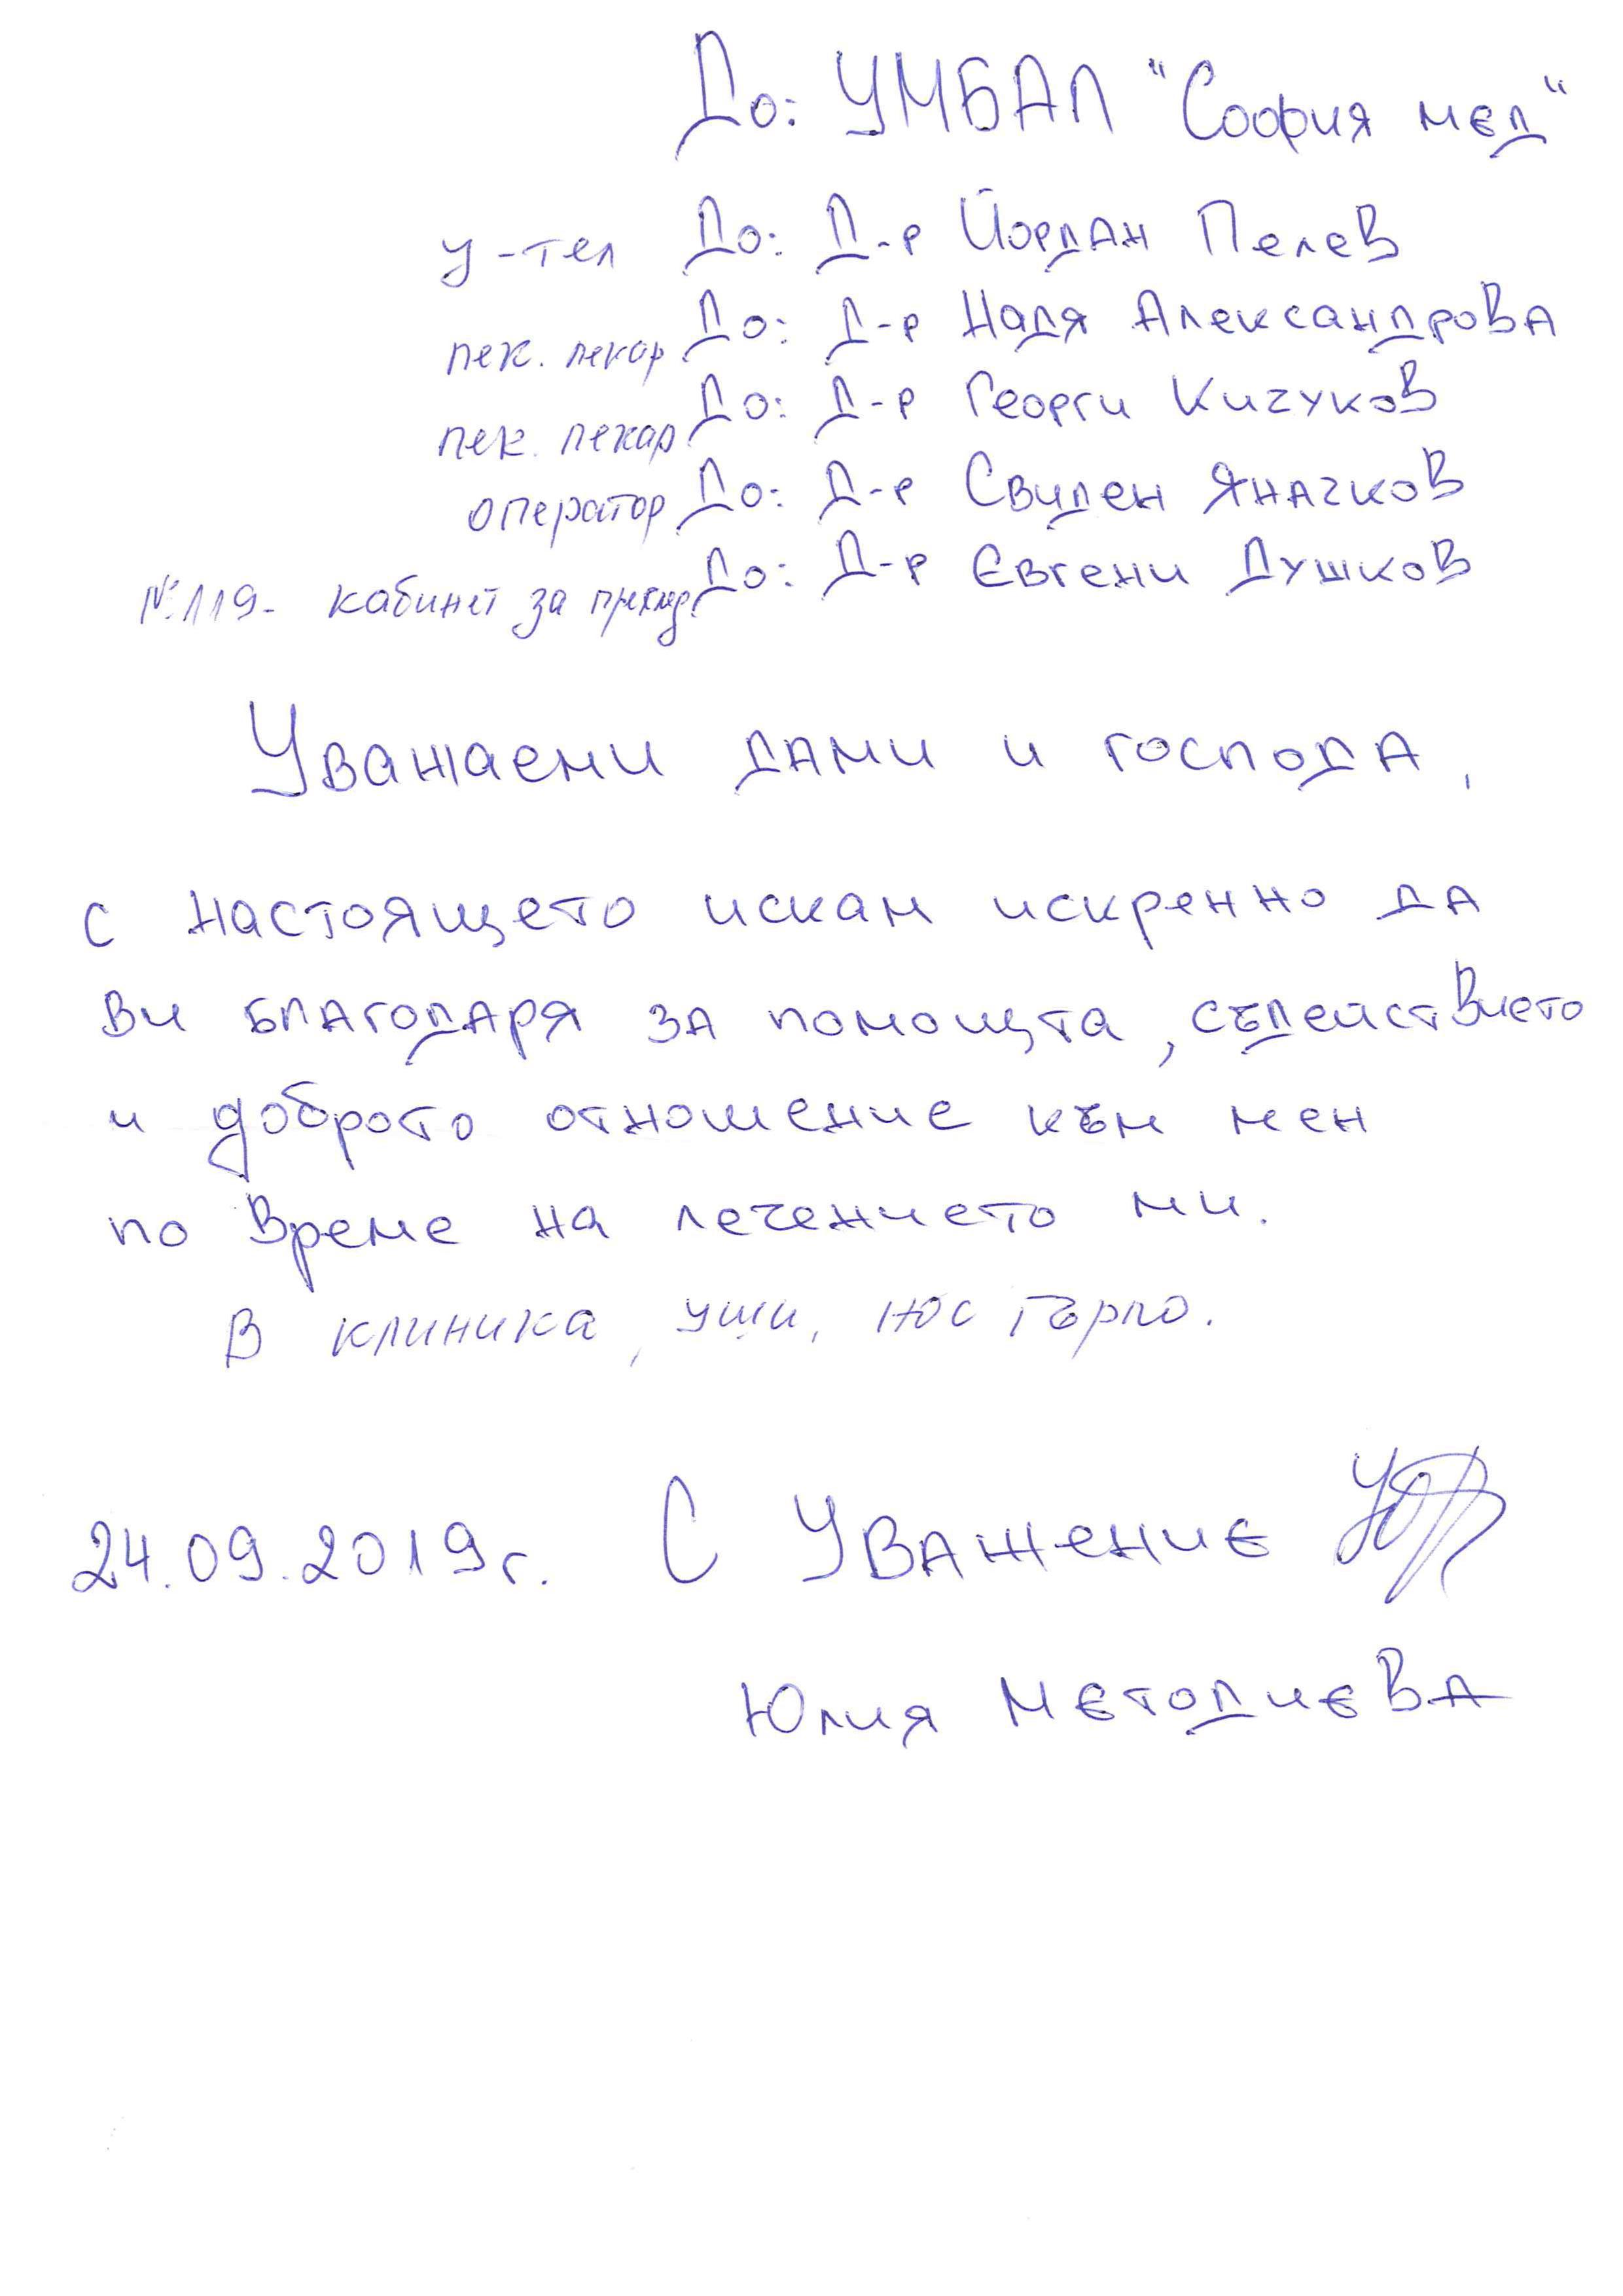 До: УМБАЛ "София мед"
у-тел До: Д-р Йордан Пелев
лек. лекар До: Д-р Надя Александрова
лек. лекар До: Д-р Георги Кичуков
оператор До: Д-р Свилен Яначков
№119- кабинет за преглед До: Д-р Евгени Душков
Уважаеми дами и господа,
с настоящето искам искренно да
ви благодаря за помощта, съдействието
и доброто отношение към мен
по време на лечението ми.
В клиника, уши, нос гърло.
24.09.2019г. С Уважение
Юлия Методиева